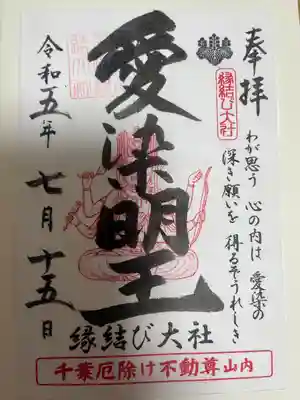 奉拝
縁結び大社
わが思う 心の内は 愛染の
深き願いを 得るぞうれしき
愛染明王
令和五年 七月 十五日
縁結び大社
千葉厄除け不動尊山内